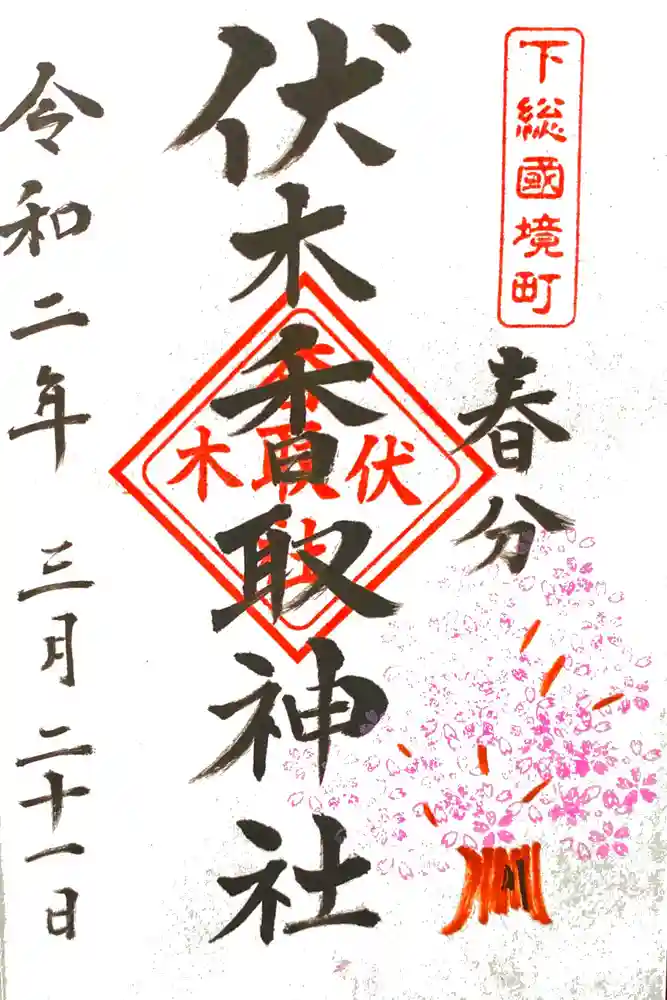 下総國境町
春分
伏木香取神社
伏木
香取
令和二年 三月二十一日